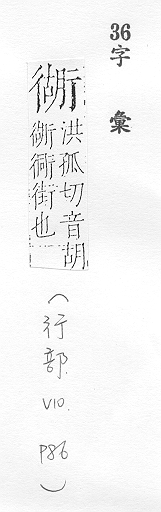 36字彙
衚
洪孤切音胡
衚衕街也
(行部 V10. P86)